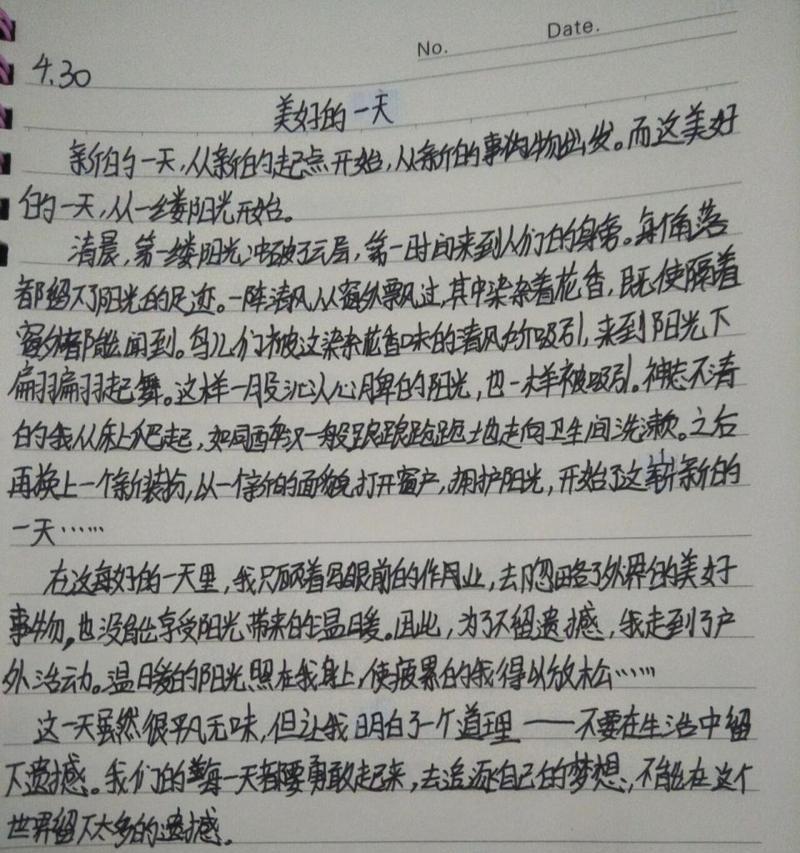 No.
Date.
4.30
美好的一天
新的一天,从新的起点开始,从新的事物出发。而这美好
的一天,从一缕阳光开始。
清晨,第一缕阳光冲破了云层,第一时间来到人们的身旁。每个角落
都留下了阳光的足迹。一阵清风从窗外飘过,其中染杂着花香,既使隔着
窗外都能闻到。鸟儿们被这染杂花香味的清风所吸引,来到阳光下
翩翩起舞。这样一股沁人心脾的阳光,也一样被吸引。神志不清
的我从床上爬起,如同醉汉一般踉踉跄跄地走向卫生间洗漱。之后
再换上一个新装扮,以一个新的面貌打开窗户,拥护阳光,开始了这崭新的
一天……
在这每好的一天里,我只顾着写眼前的作业,去忽略了外界的美好
事物,也没能去享受阳光带来的温暖。因此,为了不留遗憾,我走到了户
外活动。温暖的阳光照在我身上,使疲累的我得以放松……
这一天虽然很平凡无味,但让我明白了一个道理——不要在生活中留
下遗憾。我们的每一天都要勇敢起来,去追逐自己的梦想,不能在这个
世界留下太多的遗憾。